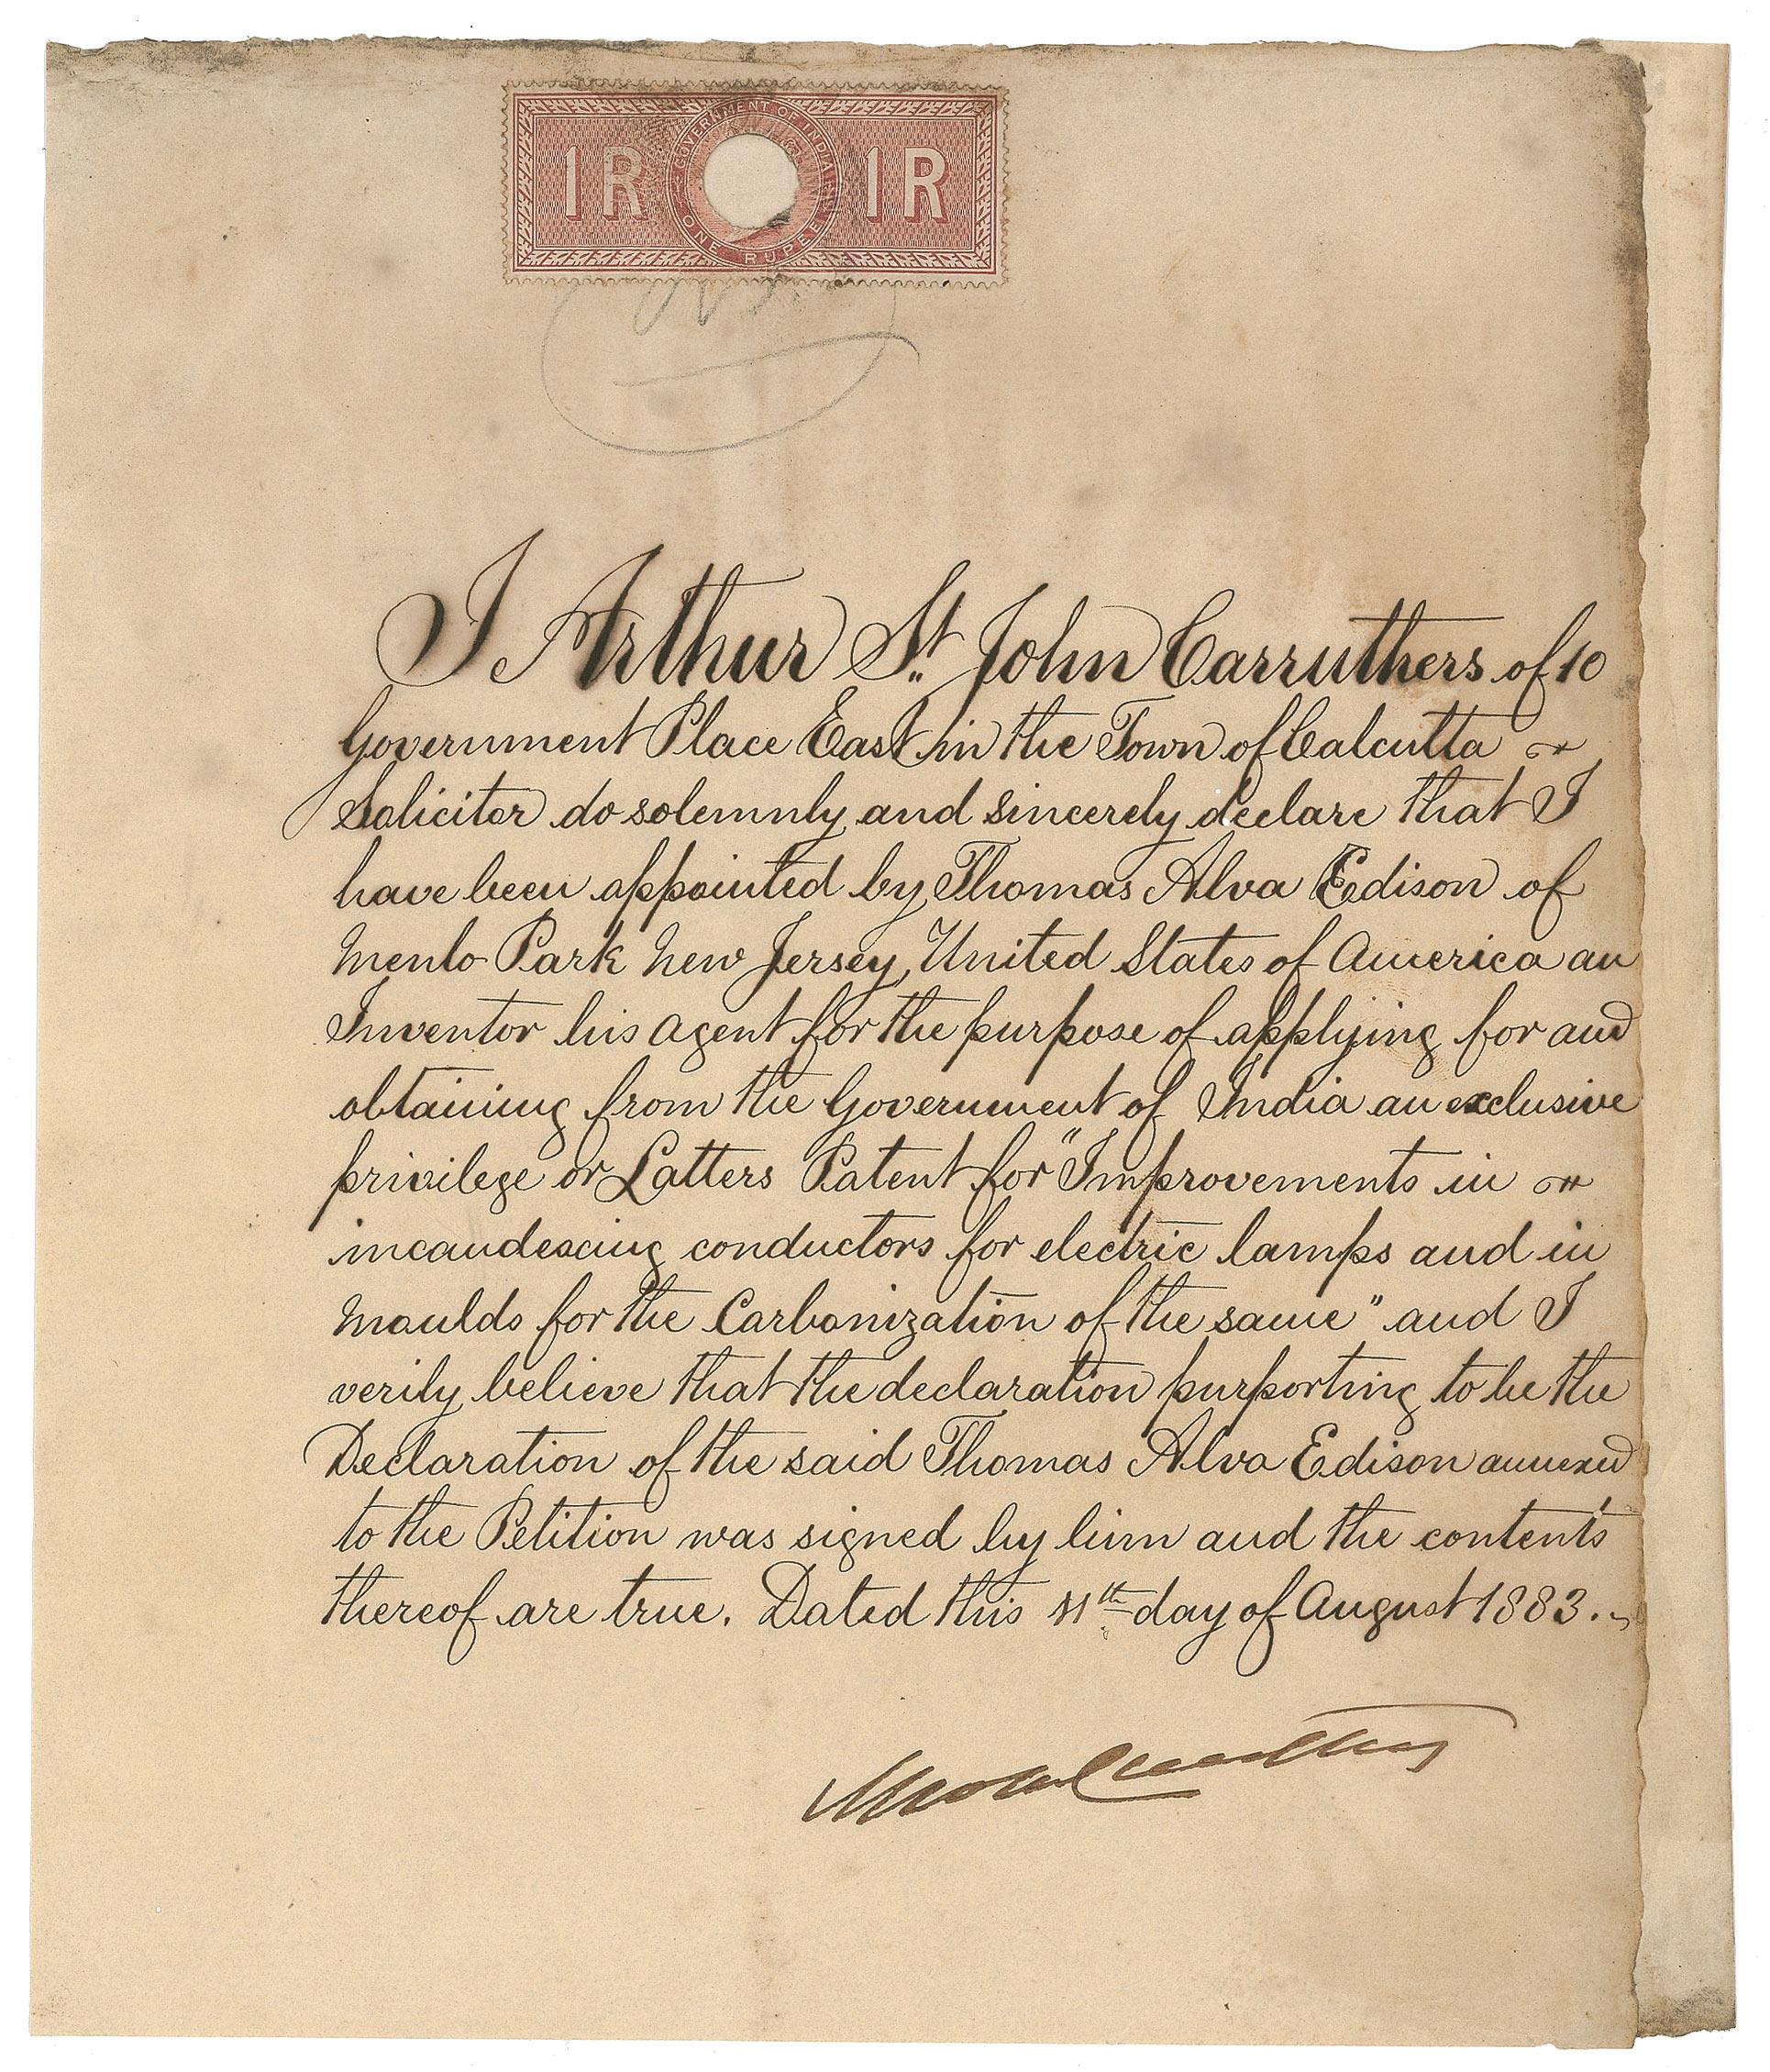 GOVERNMENT OF INDIA
1 R 1 R
ONE RUPEE
I Arthur St. John Carruthers of 10
Government Place East in the Town of Calcutta
Solicitor do solemnly and sincerely declare that I
have been appointed by Thomas Alva Edison of
Menlo Park New Jersey, United States of America an
Inventor his agent for the purpose of applying for and
obtaining from the Government of India an exclusive
privilege or Letters Patent for "Improvements in
incandescing conductors for electric lamps and in
Moulds for the Carbonization of the same" and I
verily believe that the declaration purporting to be the
Declaration of the said Thomas Alva Edison annexed
to the Petition was signed by him and the contents
thereof are true. Dated this 11th day of August 1883.